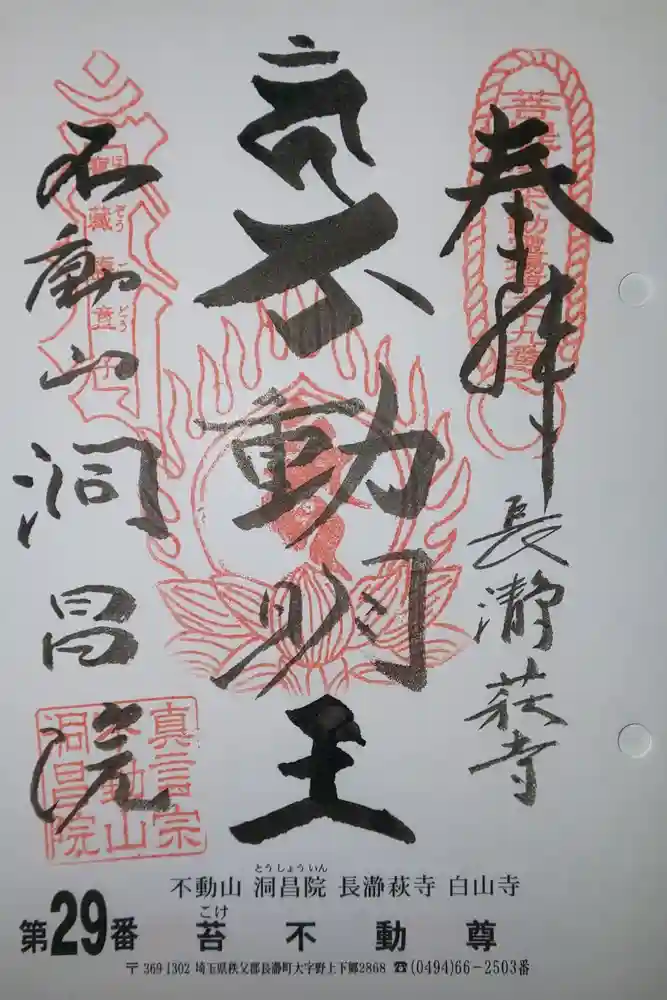 奉拝
長瀞萩寺
不動明王
不動山
洞昌院
真言宗
不動山
洞昌院
寶
藏
童
ぞう
どう
とうしょういん
不動山 洞昌院 長瀞萩寺 白山寺
こけ
第29番 苔不動尊
〒369-1302 埼玉県秩父郡長瀞町大字野上下郷2868 ☎(0494)66-2503番